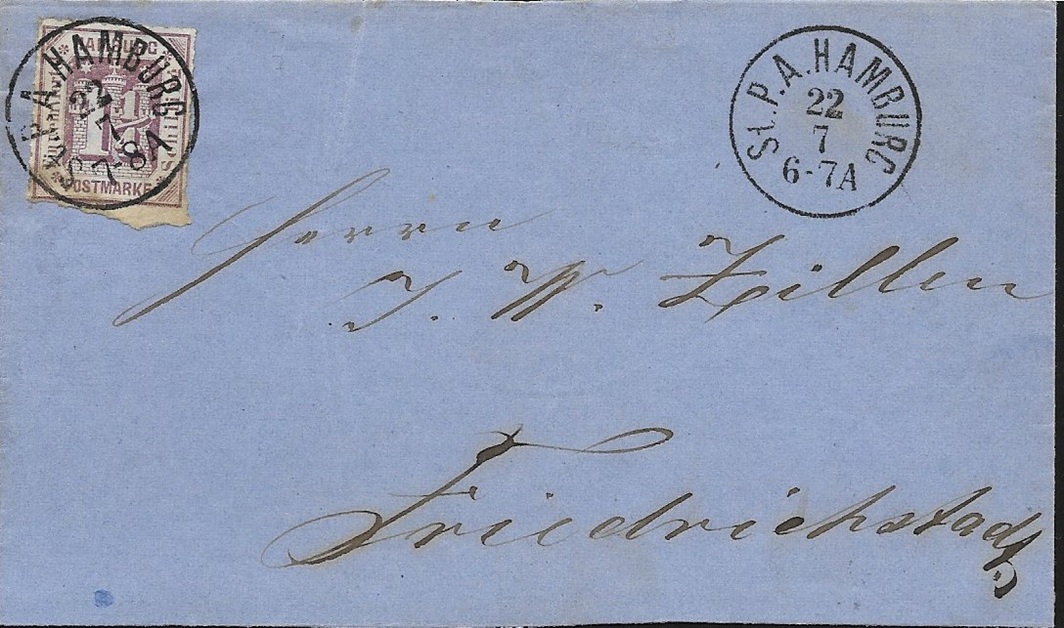 HAMBURG
POSTMARKE
St. P. A. HAMBURG
22
7
7-8A
St. P. A. HAMBURG
22
7
6-7A
Herrn
J. W. Zillen
Friedrichstadt